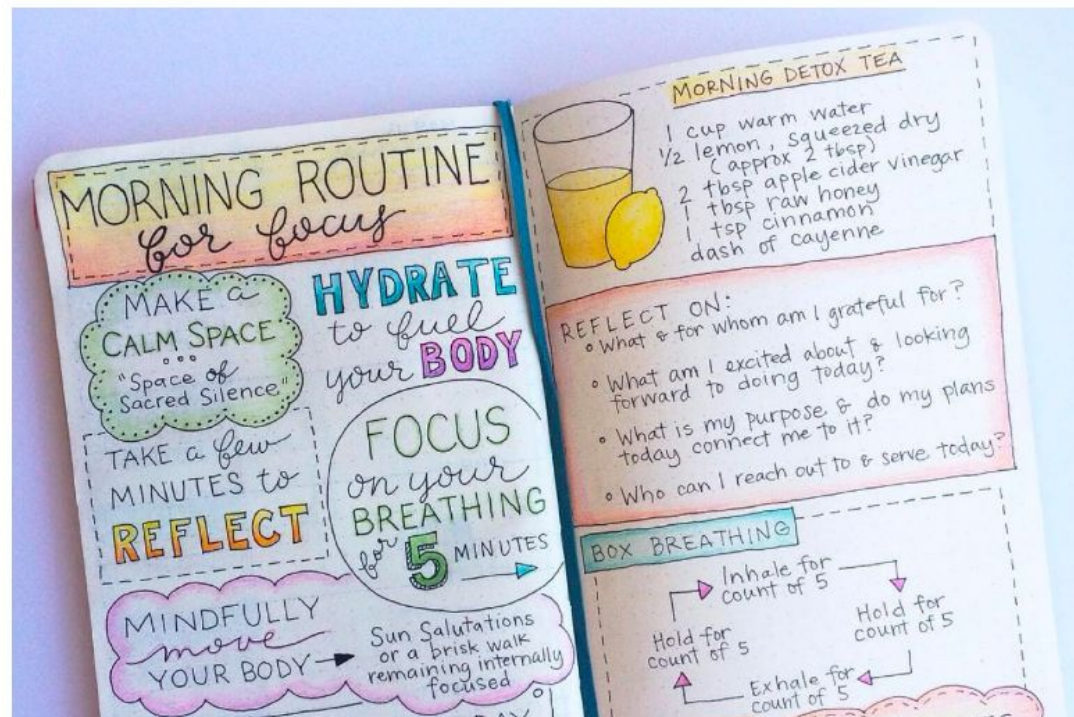 MORNING ROUTINE
for focus
MAKE a
CALM SPACE
"Space of
Sacred Silence"
HYDRATE
to fuel
your BODY
TAKE a few
MINUTES to
REFLECT
FOCUS
on your
BREATHING
for 5 MINUTES
MINDFULLY
move
YOUR BODY
Sun Salutations
or a brisk walk
remaining internally
focused
MORNING DETOX TEA
1 cup warm water
1/2 lemon, squeezed dry
(approx 2 tbsp)
2 tbsp apple cider vinegar
1 tbsp raw honey
1 tsp cinnamon
dash of cayenne
REFLECT ON:
° What & for whom am I grateful for?
° What am I excited about & looking
forward to doing today?
° What is my purpose & do my plans
today connect me to it?
° Who can I reach out to & serve today?
BOX BREATHING
Inhale for
count of 5
Hold for
count of 5
Exhale for
count of 5
Hold for
count of 5